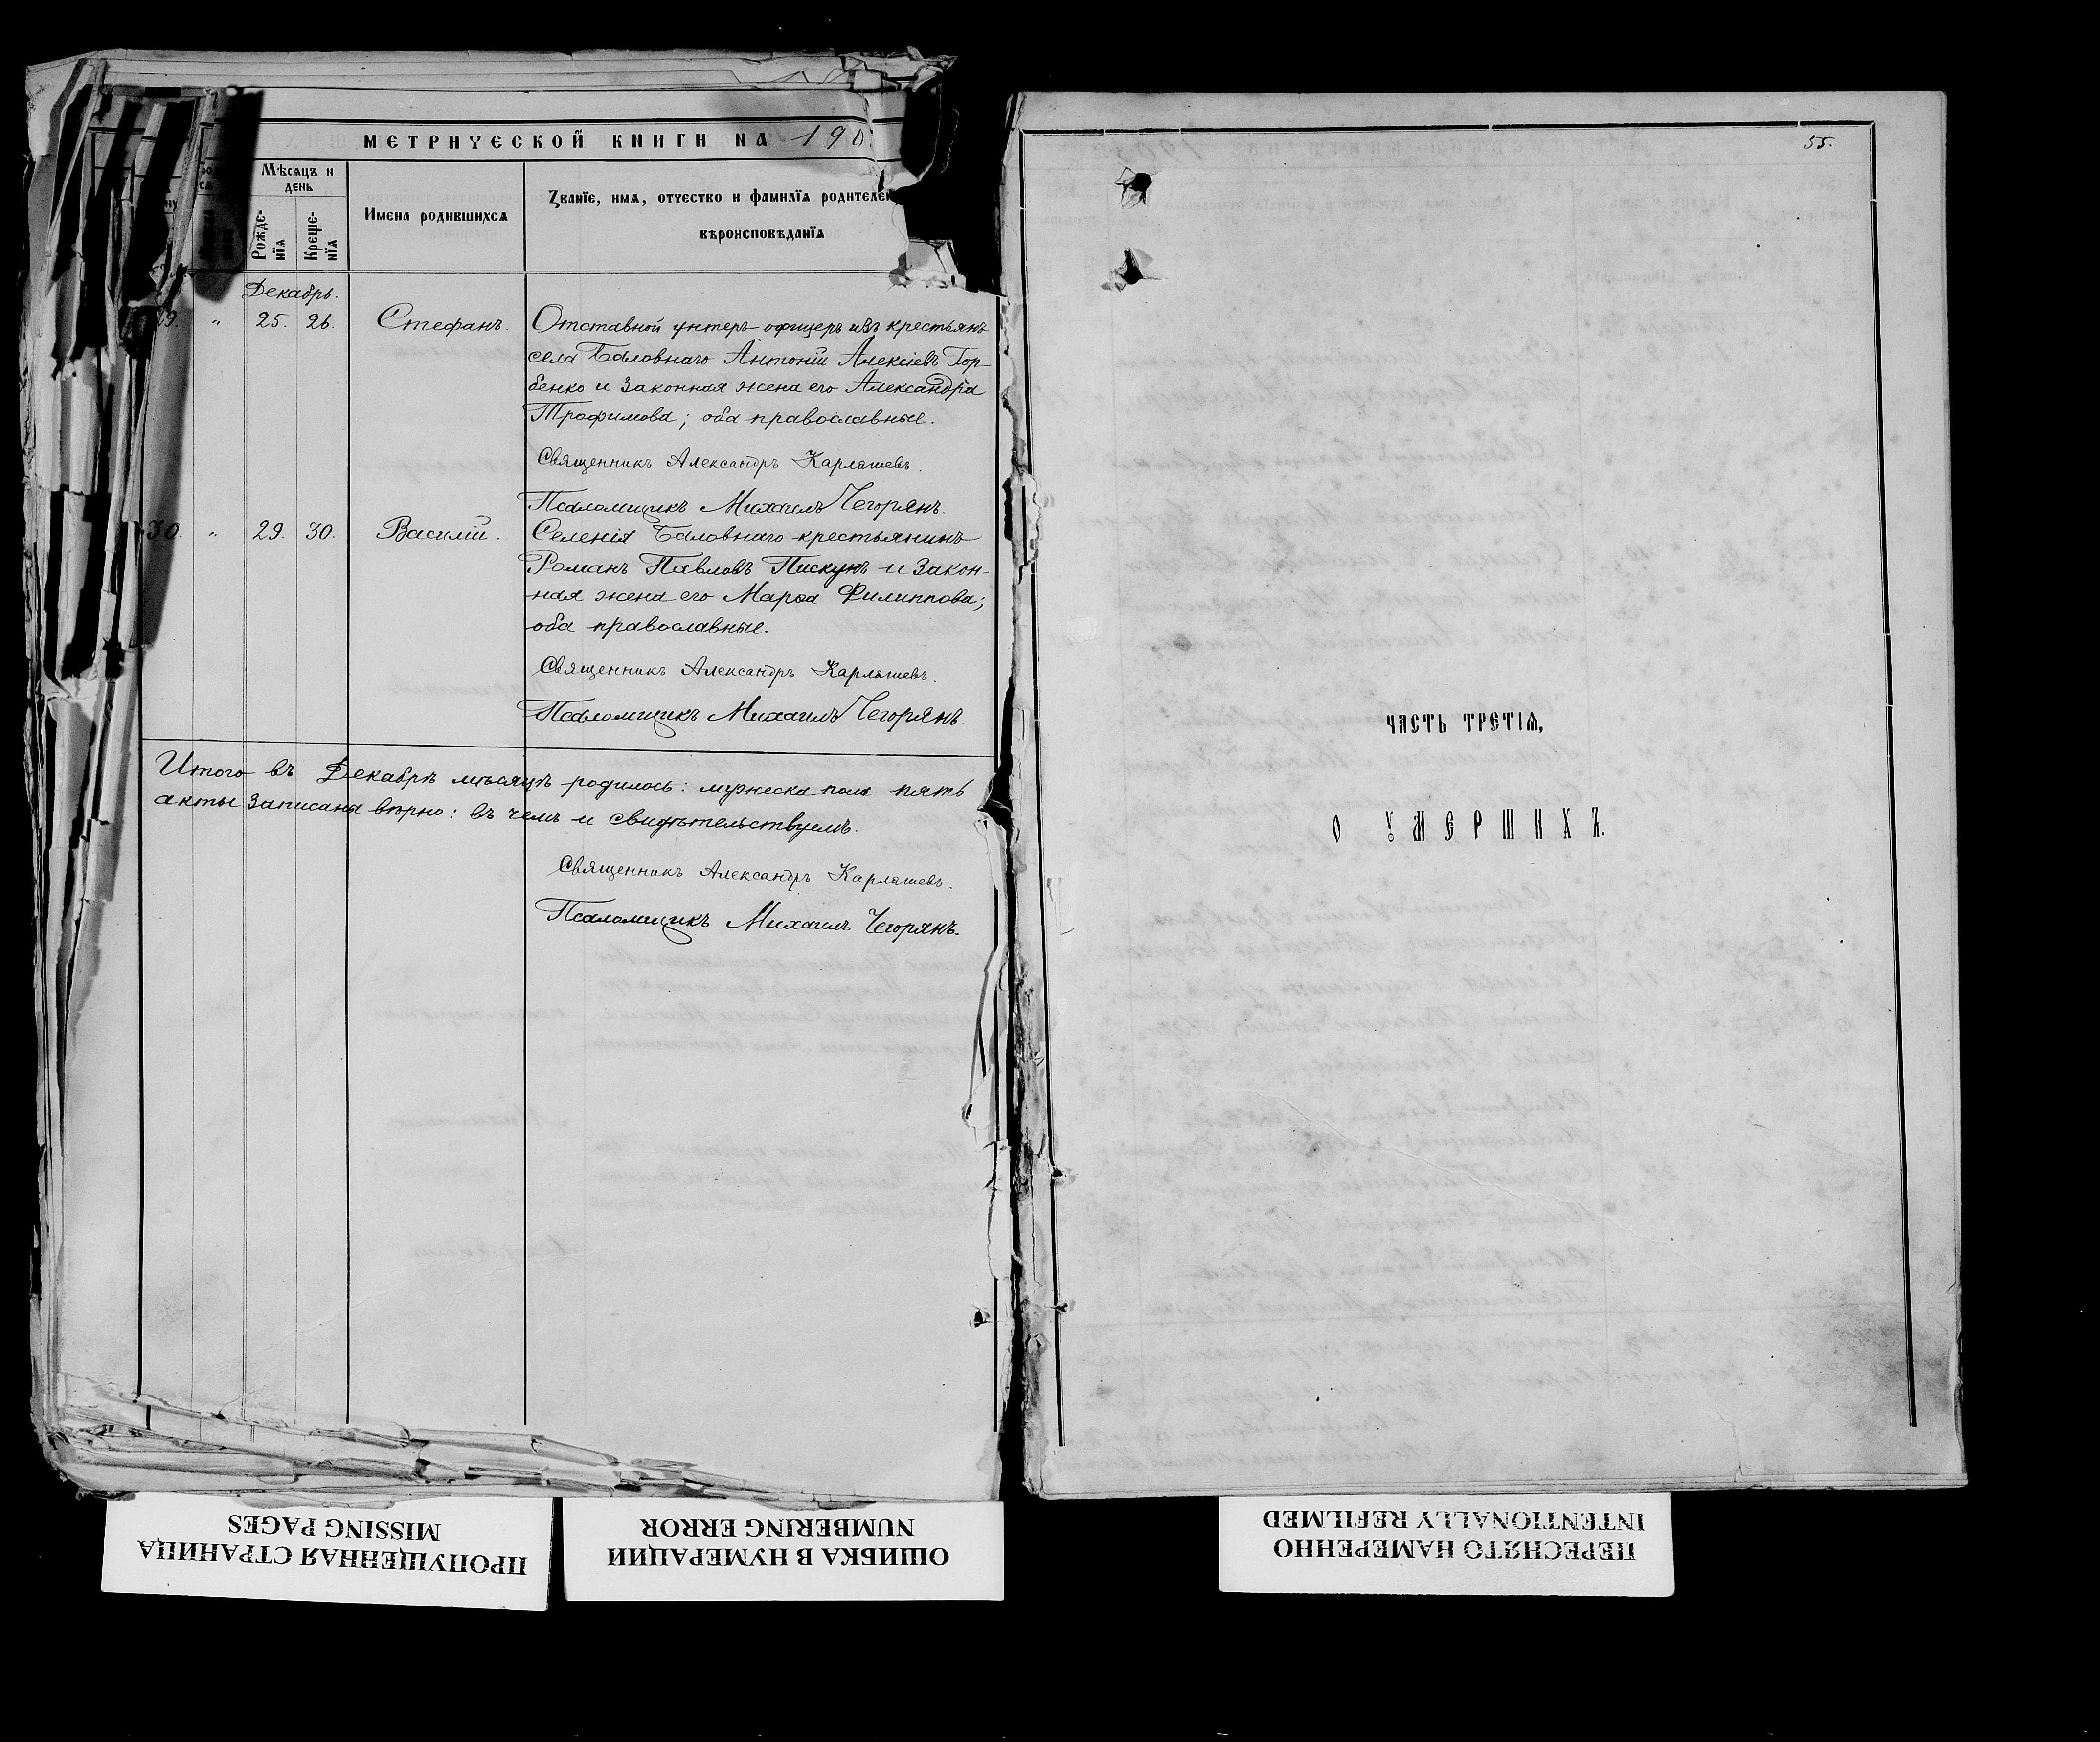 МЕТРИЧЕСКОЙ КНИГИ НА 190
Мѣсяцъ и день
Рожде-нія
Креще-нія
Имена родившихся
Званіе, имя, отчество и фамилія
вѣроисповѣданія
Декабрь.
25. 26. Стефанъ. Отставной унтеръ-офицеръ изъ крестьянъ
села Баловнаго Антоній Алексіевъ Гор-
бенко и законная жена его Александра
Трофимова; оба православные.
Священникъ Александръ Карлашевъ.
Псаломщикъ Михаилъ Чегорянъ.
30. " 29. 30. Василій. Селенія Баловнаго крестьянинъ
Романъ Павловъ Пискунъ и закон-
ная жена его Марѳа Филиппова;
оба православные.
Священникъ Александръ Карлашевъ.
Псаломщикъ Михаилъ Чегорянъ.
Итого въ Декабрѣ мѣсяцѣ родилось: мужеска пола пять
акты записаны вѣрно: въ чемъ и свидѣтельствуемъ.
Священникъ Александръ Карлашевъ.
Псаломщикъ Михаилъ Чегорянъ.
55.
ЧАСТЬ ТРЕТІЯ,
О УМЕРШИХЪ.
ПРОПУЩЕННАЯ СТРАНИЦА
MISSING PAGES
ОШИБКА В НУМЕРАЦИИ
NUMBERING ERROR
ПЕРЕСНЯТО НАМЕРЕННО
INTENTIONALLY REFILMED